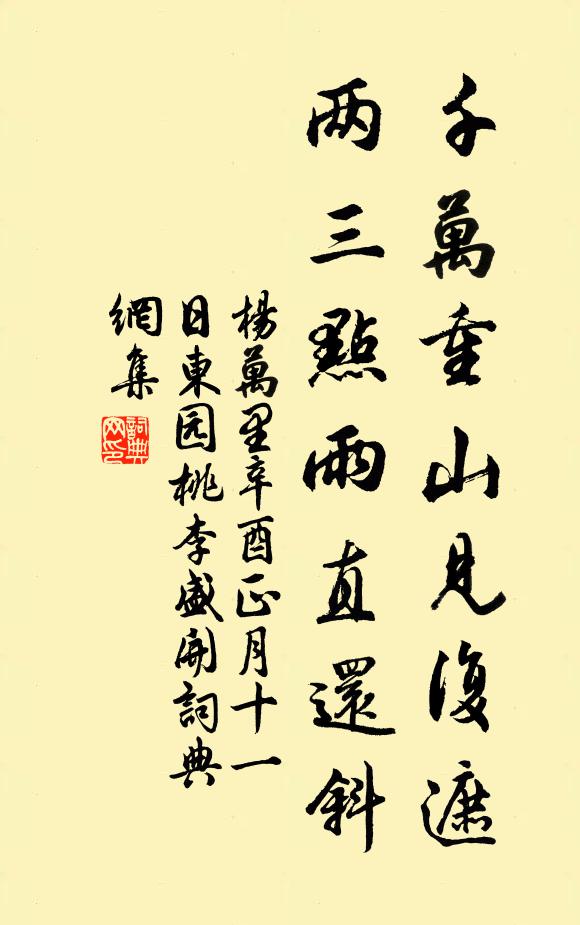 千萬重山見復遮
两三點雨直還斜
楊萬里辛酉正月十一
日東园桃李盛開詞典
網集
詞典
网印